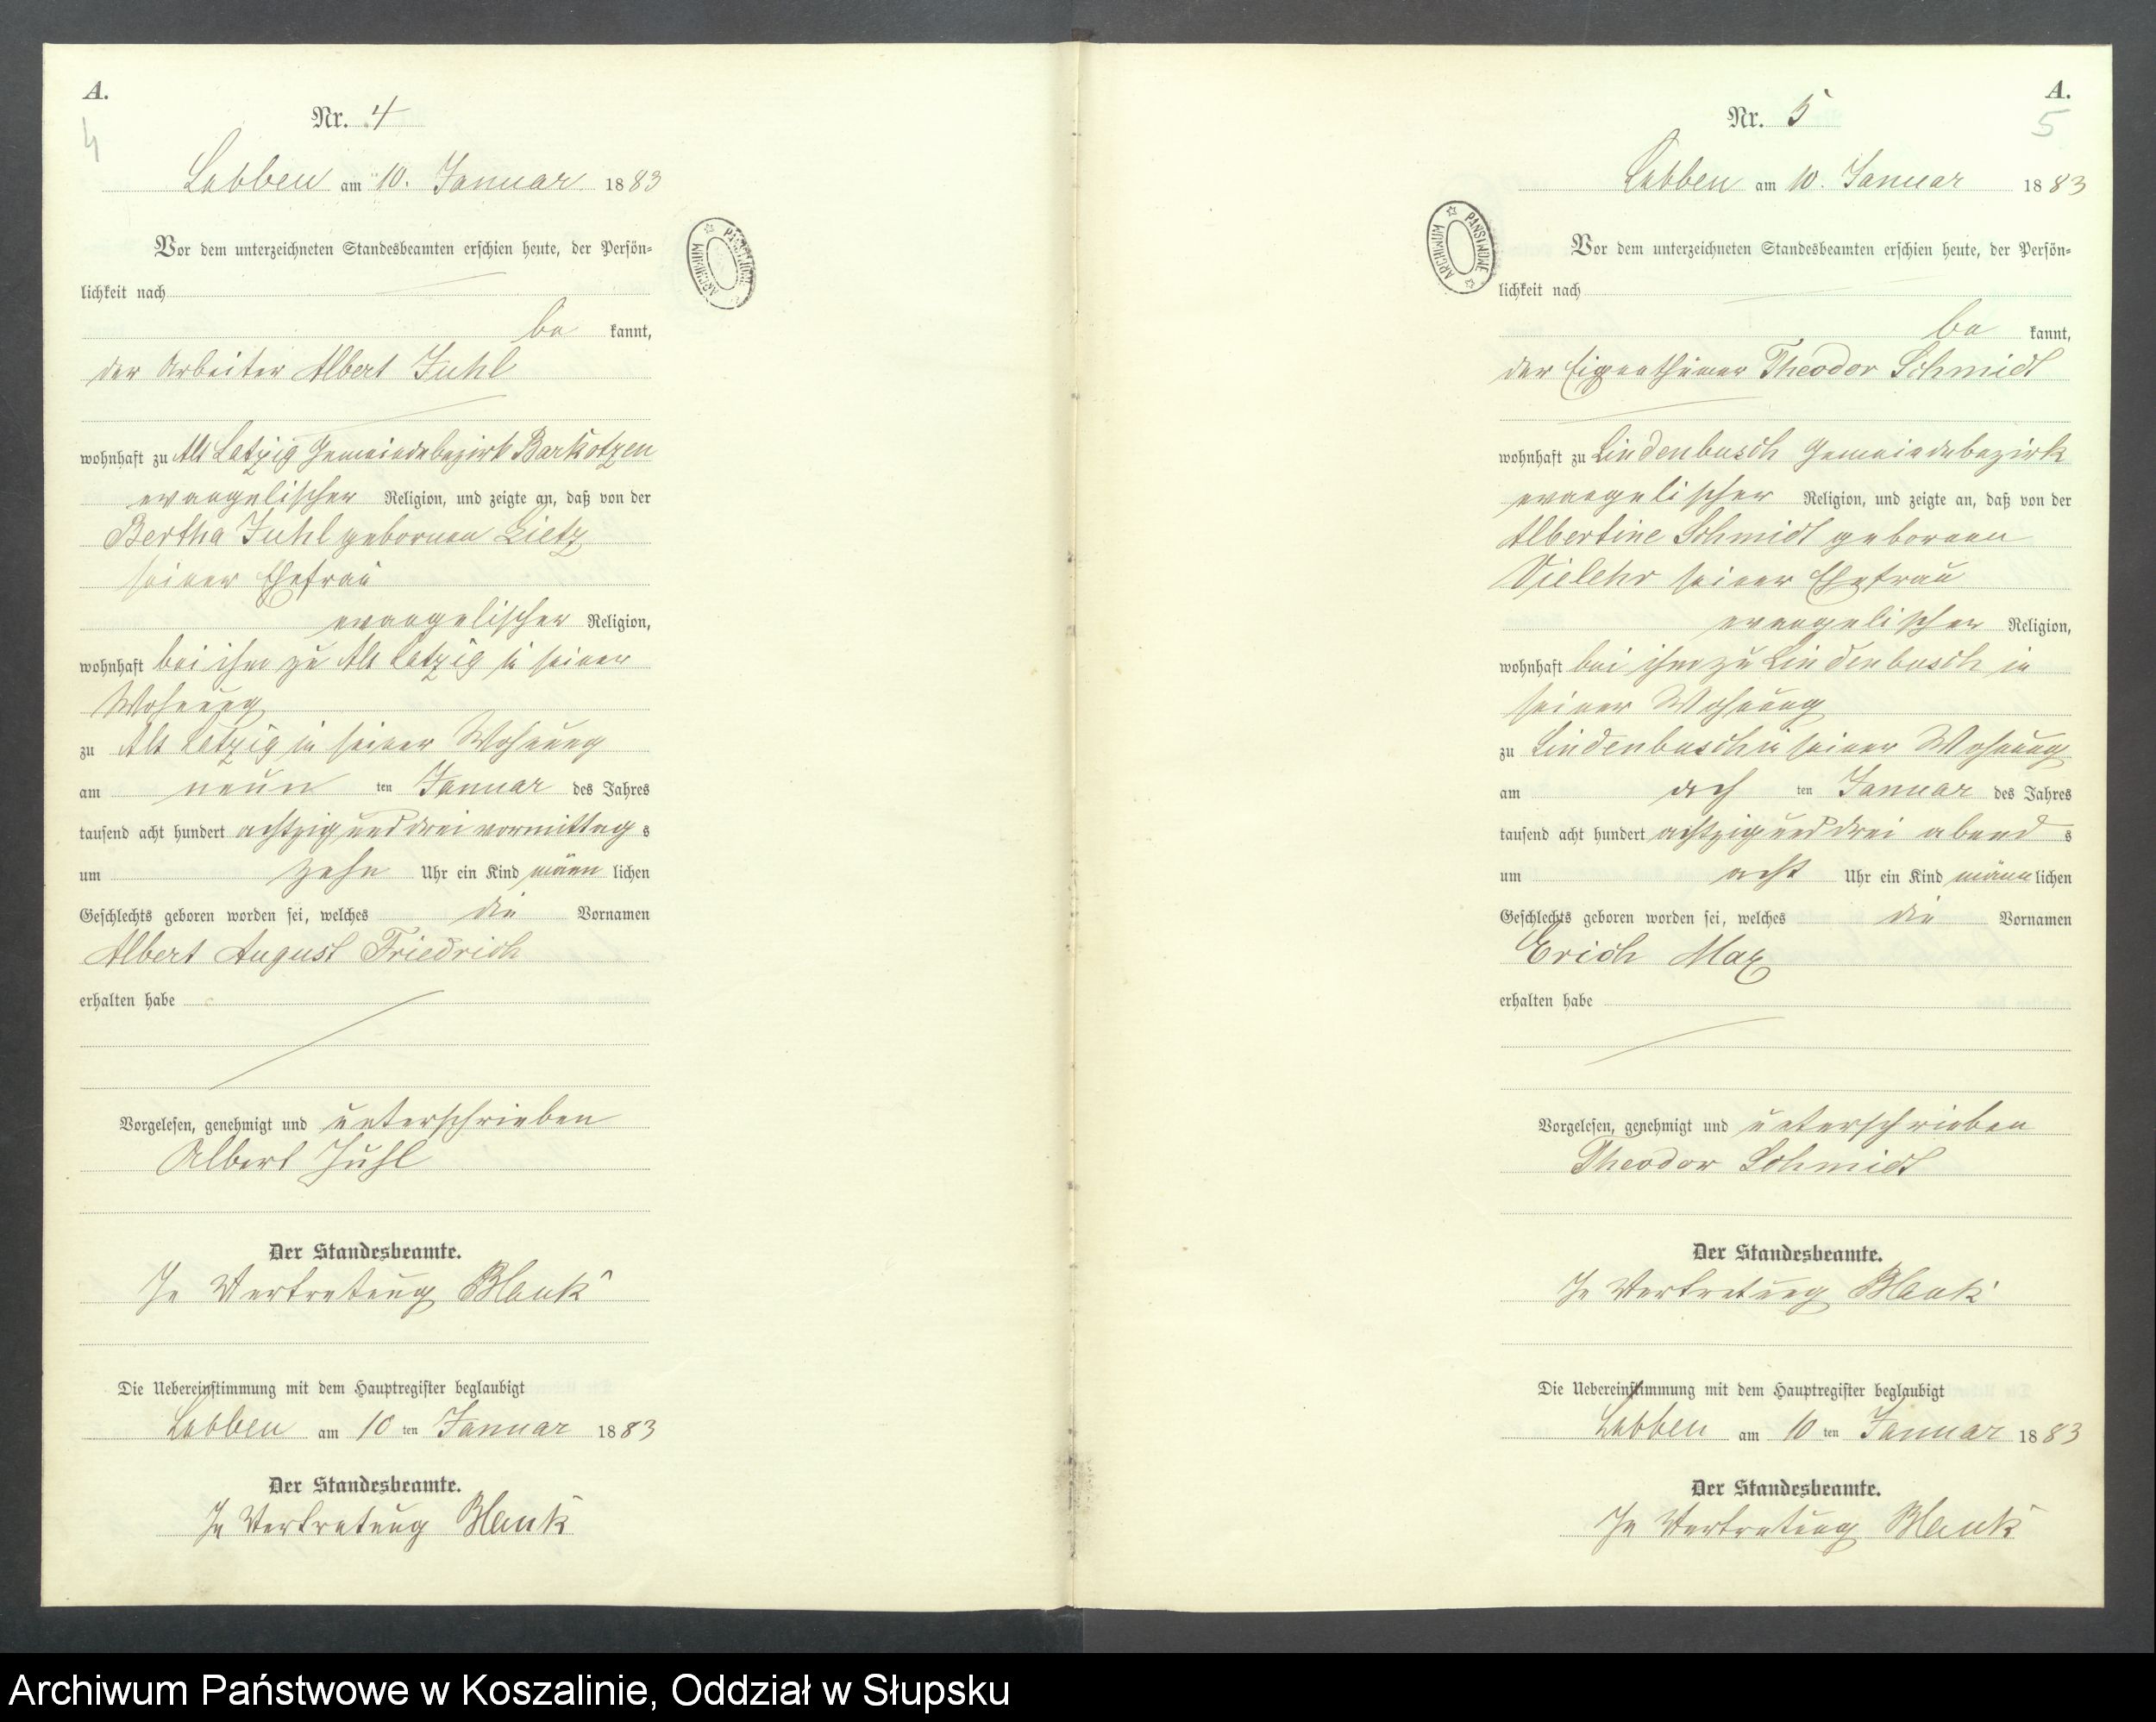 A.
4
Nr. 4
Labben am 10. Januar 1883
Vor dem unterzeichneten Standesbeamten erschien heute, der Persön-
lichkeit nach
be kannt,
der Arbeiter Albert Juhl
wohnhaft zu Alt Latzig Gemeindebezirk Barkotzen
evangelischer Religion, und zeigte an, daß von der
Bertha Juhl geborenen Lietz
seiner Ehefrau
evangelischer Religion,
wohnhaft bei ihm zu Alt Latzig in seiner
Wohnung
zu Alt Latzig in seiner Wohnung
am neun ten Januar des Jahres
tausend acht hundert achtzig und drei vormittag s
um zehn Uhr ein Kind männ lichen
Geschlechts geboren worden sei, welches die Vornamen
Albert August Friedrich
erhalten habe
Vorgelesen, genehmigt und unterschrieben
Albert Juhl
Der Standesbeamte.
In Vertretung Blank
Die Uebereinstimmung mit dem Hauptregister beglaubigt
Labben am 10 ten Januar 1883
Der Standesbeamte.
In Vertretung Blank
ARCHIWUM PAŃSTWOWE
A.
5
Nr. 5
Labben am 10. Januar 1883
Vor dem unterzeichneten Standesbeamten erschien heute, der Persön-
lichkeit nach
be kannt,
der Eigenthümer Theodor Schmidt
wohnhaft zu Lindenbusch Gemeindebezirk
evangelischer Religion, und zeigte an, daß von der
Albertine Schmidt geborenen
seiner Ehefrau
evangelischer Religion,
wohnhaft bei ihm zu Lindenbusch in
seiner Wohnung
zu Lindenbusch in seiner Wohnung
am ach ten Januar des Jahres
tausend acht hundert achtzig und drei abend s
um acht Uhr ein Kind männ lichen
Geschlechts geboren worden sei, welches die Vornamen
Erich Max
erhalten habe
Vorgelesen, genehmigt und unterschrieben
Theodor Schmidt
Der Standesbeamte.
In Vertretung Blank
Die Uebereinstimmung mit dem Hauptregister beglaubigt
Labben am 10 ten Januar 1883
Der Standesbeamte.
In Vertretung Blank
ARCHIWUM PAŃSTWOWE
Archiwum Państwowe w Koszalinie, Oddział w Słupsku